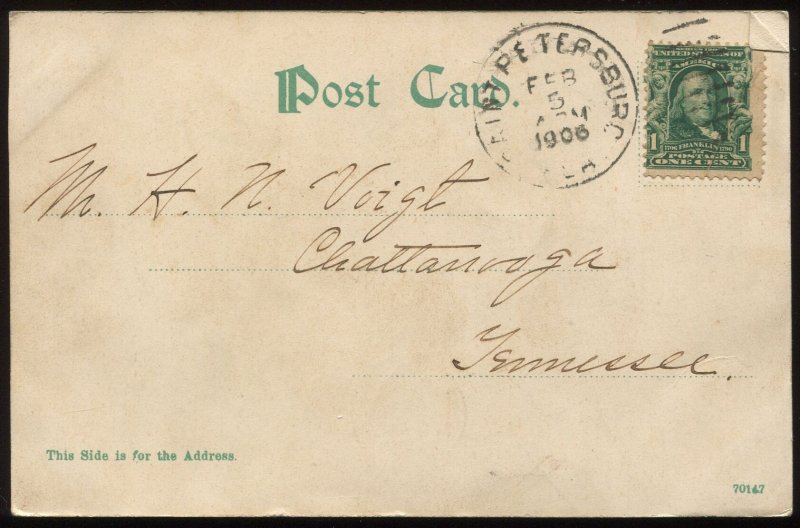 Post Card.
SAINT PETERSBURG
FEB
5
M
1906
FLA
SERIES 1902
UNITED STATES OF
AMERICA
1 1706 FRANKLIN 1790 1
POSTAGE
ONE CENT
Mr. H. N. Voigt
Chattanooga
Tennessee.
This Side is for the Address.
70147